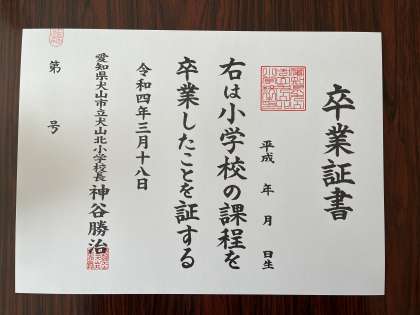 卒業証書
平成　年　月　日生
右は小学校の課程を
卒業したことを証する
令和四年三月十八日
愛知県犬山市立犬山北小学校長　神谷勝治
第　　号